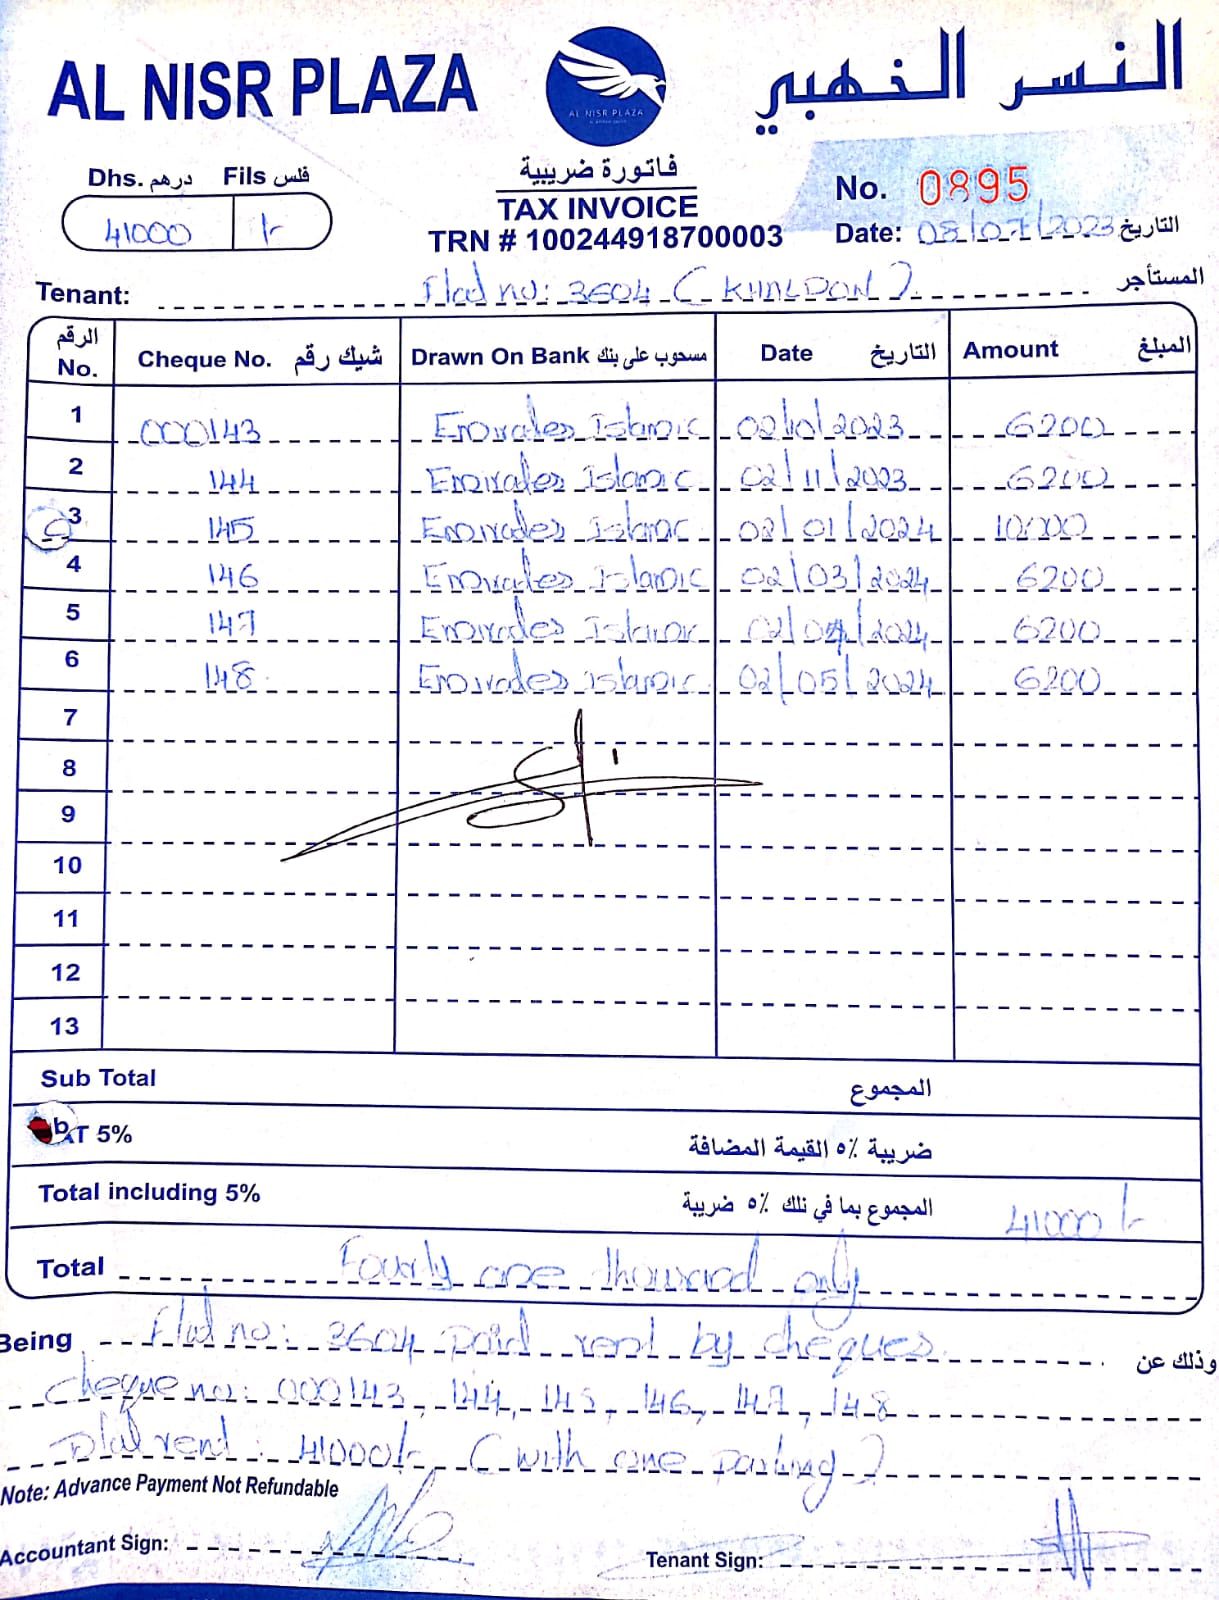 AL NISR PLAZA
النسر الذهبي
AL NISR PLAZA
Dhs. درهم Fils فلس
41000 /-
فاتورة ضريبية
TAX INVOICE
TRN # 100244918700003
No. 0895
Date: 08/07/2023 التاريخ
Tenant: Flat no: 3604 ( KHALDON ) المستأجر
الرقم No. Cheque No. شيك رقم Drawn On Bank مسحوب على بنك Date التاريخ Amount المبلغ
1 000143 Emirates Islamic 02/10/2023 6200
2 144 Emirates Islamic 02/11/2023 6200
3 145 Emirates Islamic 02/01/2024 10000
4 146 Emirates Islamic 02/03/2024 6200
5 147 Emirates Islamic 02/04/2024 6200
6 148 Emirates Islamic 02/05/2024 6200
7
8
9
10
11
12
13
Sub Total المجموع
AT 5% ضريبة ٥٪ القيمة المضافة
Total including 5% المجموع بما في ذلك ٥٪ ضريبة 41000 /-
Total Fourty one thousand only
Being Flat no: 3604 paid rent by cheques وذلك عن
cheque no: 000143, 144, 145, 146, 147, 148
Total rent: 41000/- ( with one parking )
Note: Advance Payment Not Refundable
Accountant Sign:
Tenant Sign: